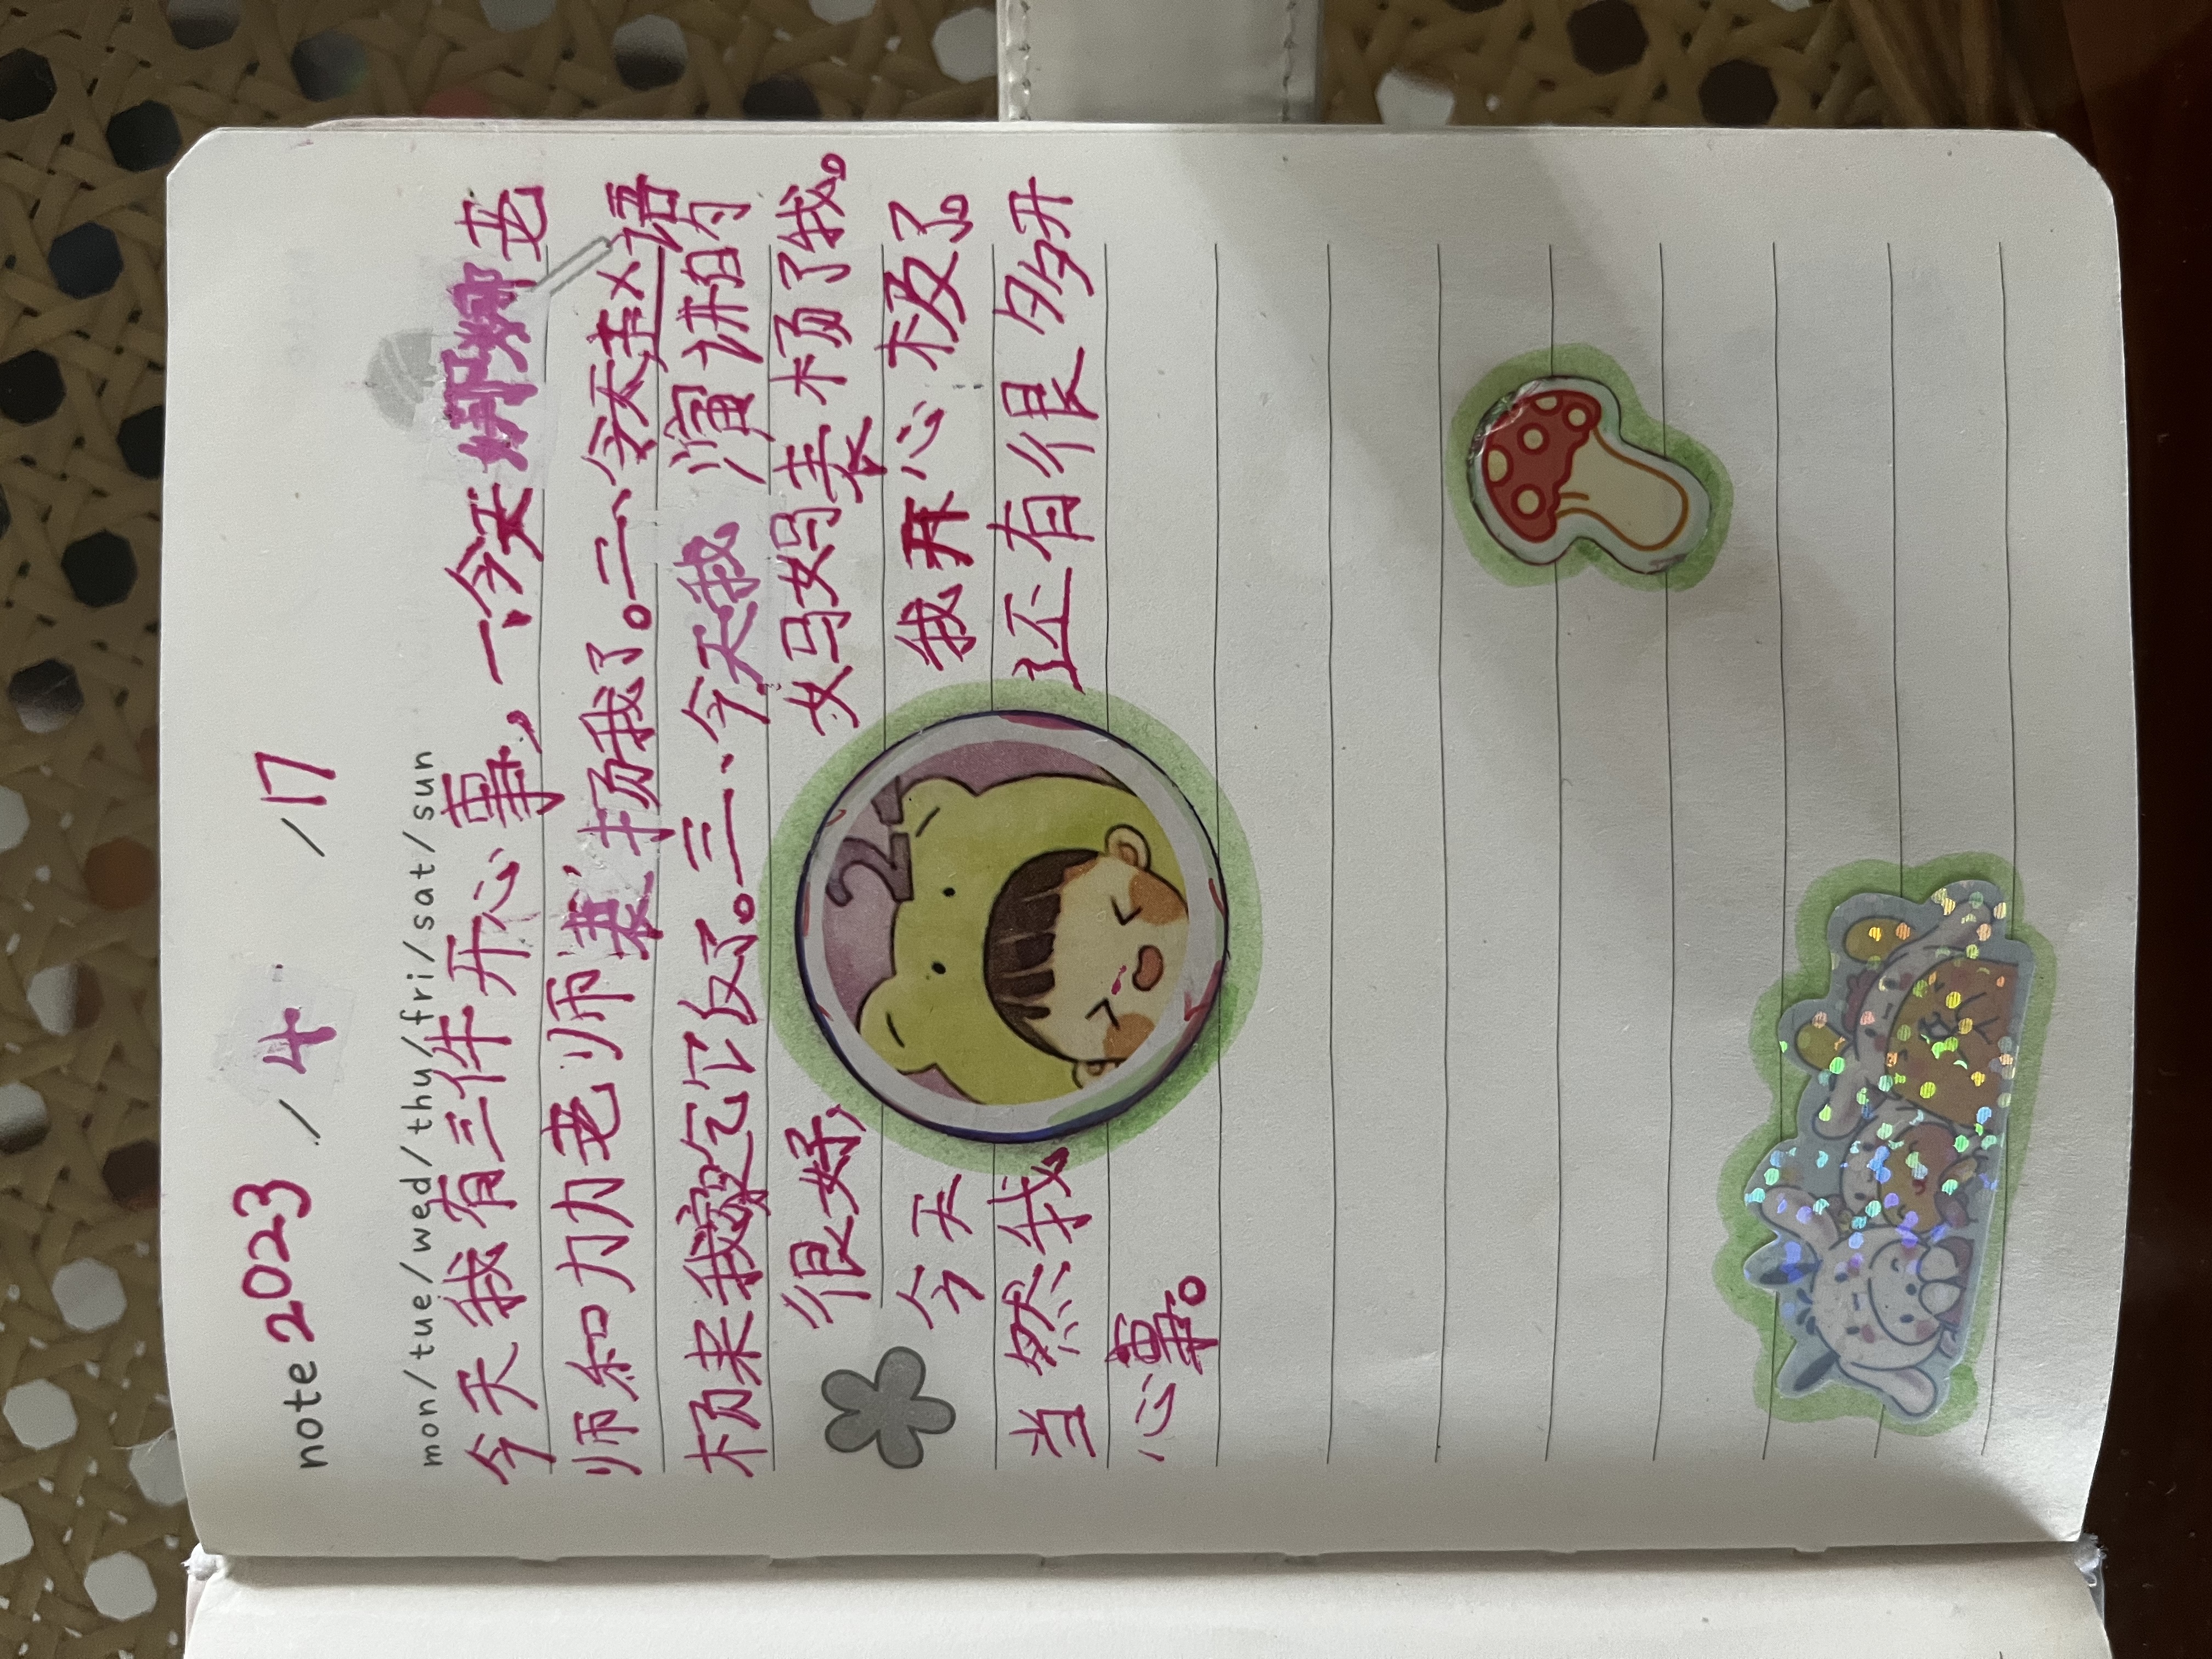 note 2023 / 4 / 17
mon/tue/wed/thu/fri/sat/sun
今天我有三件开心事，一、今天娜娜老
师和力力老师表扬我了。二、今天
杨来我家吃饭了。三、今天我演讲的
很好，妈妈表杨了我。
今天我开心极了。
当然我还有很多开
心事。